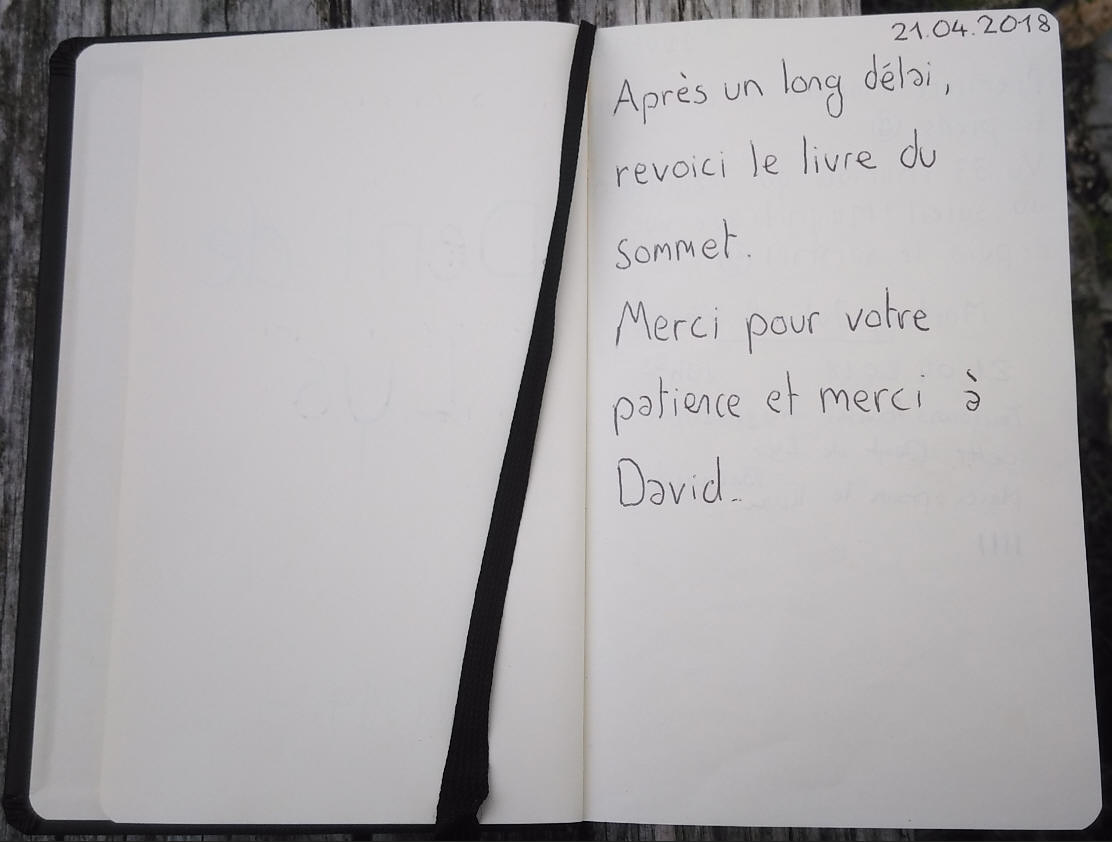 21.04.2018
Après un long délai,
revoici le livre du
sommet.
Merci pour votre
patience et merci à
David.